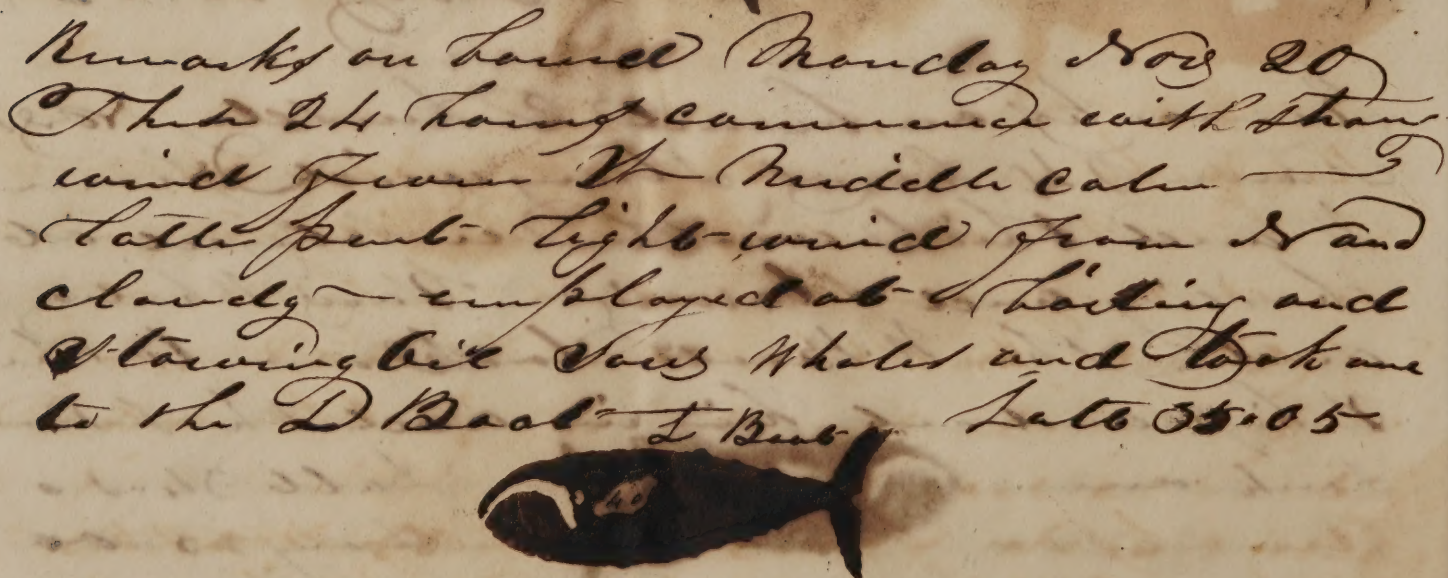 Remarks on board Monday Nov 20
These 24 hours commence with strong
wind from Middle calm
latter part light wind from N and
cloudy employed at boiling and
stowing oil saw Whales and took one
to the L Boat L Boat Latt 35.05
40